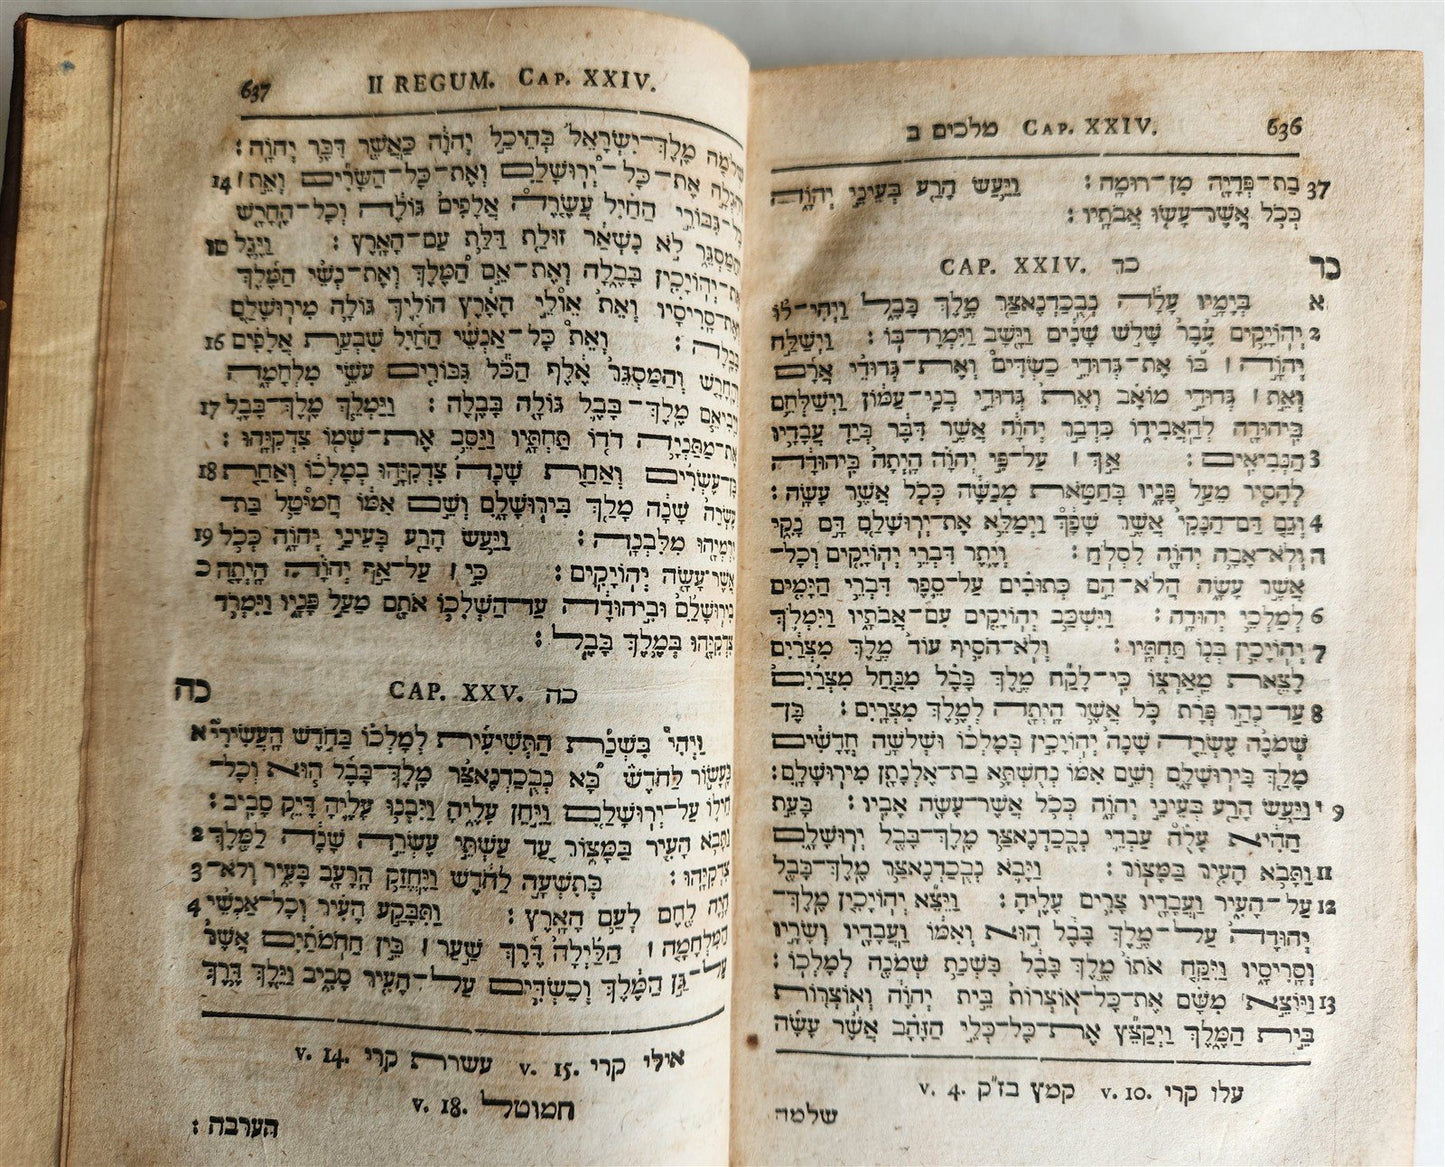 מלכים ב CAP. XXIV. 636
37 בַּת־פְּדָיָה מִן־רוּמָה׃ וַיַּעַשׂ הָרַע בְּעֵינֵי יְהוָה
כְּכֹל אֲשֶׁר־עָשׂוּ אֲבֹתָיו׃
CAP. XXIV. כד כד
א בְּיָמָיו עָלָה נְבֻכַדְנֶאצַּר מֶלֶךְ בָּבֶל וַיְהִי־לוֹ
2 יְהוֹיָקִים עֶבֶד שָׁלֹשׁ שָׁנִים וַיָּשָׁב וַיִּמְרָד־בּוֹ׃ וַיְשַׁלַּח
יְהוָה׀ בּוֹ אֶת־גְּדוּדֵי כַשְׂדִּים וְאֶת־גְּדוּדֵי אֲרָם
וְאֵת׀ גְּדוּדֵי מוֹאָב וְאֵת גְּדוּדֵי בְנֵי־עַמּוֹן וַיְשַׁלְּחֵם
בִּיהוּדָה לְהַאֲבִידוֹ כִּדְבַר יְהוָה אֲשֶׁר דִּבֶּר בְּיַד עֲבָדָיו
3 הַנְּבִיאִים׃ אַךְ׀ עַל־פִּי יְהוָה הָיְתָה בִּיהוּדָה
לְהָסִיר מֵעַל פָּנָיו בְּחַטֹּאת מְנַשֶּׁה כְּכֹל אֲשֶׁר עָשָׂה׃
4 וְגַם דַּם־הַנָּקִי אֲשֶׁר שָׁפָךְ וַיְמַלֵּא אֶת־יְרוּשָׁלִַם דָּם נָקִי
ה וְלֹא־אָבָה יְהוָה לִסְלֹחַ׃ וְיֶתֶר דִּבְרֵי יְהוֹיָקִים וְכָל־
אֲשֶׁר עָשָׂה הֲלֹא־הֵם כְּתוּבִים עַל־סֵפֶר דִּבְרֵי הַיָּמִים
6 לְמַלְכֵי יְהוּדָה׃ וַיִּשְׁכַּב יְהוֹיָקִים עִם־אֲבֹתָיו וַיִּמְלֹךְ
7 יְהוֹיָכִין בְּנוֹ תַּחְתָּיו׃ וְלֹא־הֹסִיף עוֹד מֶלֶךְ מִצְרַיִם
לָצֵאת מֵאַרְצוֹ כִּי־לָקַח מֶלֶךְ בָּבֶל מִנַּחַל מִצְרַיִם
8 עַד־נְהַר פְּרָת כֹּל אֲשֶׁר הָיְתָה לְמֶלֶךְ מִצְרָיִם׃ בֶּן־
שְׁמֹנֶה עֶשְׂרֵה שָׁנָה יְהוֹיָכִין בְּמָלְכוֹ וּשְׁלֹשָׁה חֳדָשִׁים
מָלַךְ בִּירוּשָׁלִָם וְשֵׁם אִמּוֹ נְחֻשְׁתָּא בַת־אֶלְנָתָן מִירוּשָׁלִָם׃
9 י וַיַּעַשׂ הָרַע בְּעֵינֵי יְהוָה כְּכֹל אֲשֶׁר־עָשָׂה אָבִיו׃ בָּעֵת
הַהִיא עָלֻה עַבְדֵי נְבֻכַדְנֶאצַּר מֶלֶךְ־בָּבֶל יְרוּשָׁלִָם
11 וַתָּבֹא הָעִיר בַּמָּצוֹר׃ וַיָּבֹא נְבֻכַדְנֶאצַּר מֶלֶךְ־בָּבֶל
12 עַל־הָעִיר וַעֲבָדָיו צָרִים עָלֶיהָ׃ וַיֵּצֵא יְהוֹיָכִין מֶלֶךְ־
יְהוּדָה עַל־מֶלֶךְ בָּבֶל הוּא וְאִמּוֹ וַעֲבָדָיו וְשָׂרָיו
וְסָרִיסָיו וַיִּקַּח אֹתוֹ מֶלֶךְ בָּבֶל בִּשְׁנַת שְׁמֹנֶה לְמָלְכוֹ׃
13 וַיּוֹצֵא מִשָּׁם אֶת־כָּל־אוֹצְרוֹת בֵּית יְהוָה וְאוֹצְרוֹת
בֵּית הַמֶּלֶךְ וַיְקַצֵּץ אֶת־כָּל־כְּלֵי הַזָּהָב אֲשֶׁר עָשָׂה
עלו קרי v. 10. קמץ בז״ק v. 4.
שלמה
637 II REGUM. CAP. XXIV.
שְׁלֹמֹה מֶלֶךְ־יִשְׂרָאֵל בְּהֵיכַל יְהוָה כַּאֲשֶׁר דִּבֶּר יְהוָה׃
14 וְהִגְלָה אֶת־כָּל־יְרוּשָׁלִַם וְאֶת־כָּל־הַשָּׂרִים וְאֵת׀
כָּל־גִּבּוֹרֵי הַחַיִל עֲשָׂרָה אֲלָפִים גּוֹלֶה וְכָל־הֶחָרָשׁ
טו וְהַמַּסְגֵּר לֹא נִשְׁאַר זוּלַת דַּלַּת עַם־הָאָרֶץ׃ וַיֶּגֶל
אֶת־יְהוֹיָכִין בָּבֶלָה וְאֶת־אֵם הַמֶּלֶךְ וְאֶת־נְשֵׁי הַמֶּלֶךְ
וְאֶת־סָרִיסָיו וְאֵת אוּלֵי הָאָרֶץ הוֹלִיךְ גּוֹלָה מִירוּשָׁלִַם
16 בָּבֶלָה׃ וְאֵת כָּל־אַנְשֵׁי הַחַיִל שִׁבְעַת אֲלָפִים
וְהֶחָרָשׁ וְהַמַּסְגֵּר אֶלֶף הַכֹּל גִּבּוֹרִים עֹשֵׂי מִלְחָמָה
17 וַיְבִיאֵם מֶלֶךְ־בָּבֶל גּוֹלָה בָּבֶלָה׃ וַיַּמְלֵךְ מֶלֶךְ־בָּבֶל
אֶת־מַתַּנְיָה דֹדוֹ תַּחְתָּיו וַיַּסֵּב אֶת־שְׁמוֹ צִדְקִיָּהוּ׃
18 בֶּן־עֶשְׂרִים וְאַחַת שָׁנָה צִדְקִיָּהוּ בְמָלְכוֹ וְאַחַת
עֶשְׂרֵה שָׁנָה מָלַךְ בִּירוּשָׁלִָם וְשֵׁם אִמּוֹ חֲמִיטַל בַּת־
19 יִרְמְיָהוּ מִלִּבְנָה׃ וַיַּעַשׂ הָרַע בְּעֵינֵי יְהוָה כְּכֹל
כ אֲשֶׁר־עָשָׂה יְהוֹיָקִים׃ כִּי׀ עַל־אַף יְהוָה הָיְתָה
בִירוּשָׁלִַם וּבִיהוּדָה עַד־הִשְׁלִכוֹ אֹתָם מֵעַל פָּנָיו וַיִּמְרֹד
צִדְקִיָּהוּ בְּמֶלֶךְ בָּבֶל׃
CAP. XXV. כה כה
א וַיְהִי בִשְׁנַת הַתְּשִׁיעִית לְמָלְכוֹ בַּחֹדֶשׁ הָעֲשִׂירִי
בֶּעָשׂוֹר לַחֹדֶשׁ בָּא נְבֻכַדְנֶאצַּר מֶלֶךְ־בָּבֶל הוּא וְכָל־
חֵילוֹ עַל־יְרוּשָׁלִַם וַיִּחַן עָלֶיהָ וַיִּבְנוּ עָלֶיהָ דָּיֵק סָבִיב׃
2 וַתָּבֹא הָעִיר בַּמָּצוֹר עַד עַשְׁתֵּי עֶשְׂרֵה שָׁנָה לַמֶּלֶךְ
3 צִדְקִיָּהוּ׃ בְּתִשְׁעָה לַחֹדֶשׁ וַיֶּחֱזַק הָרָעָב בָּעִיר וְלֹא־
4 הָיָה לֶחֶם לְעַם הָאָרֶץ׃ וַתִּבָּקַע הָעִיר וְכָל־אַנְשֵׁי
הַמִּלְחָמָה׀ הַלַּיְלָה דֶּרֶךְ שַׁעַר׀ בֵּין הַחֹמֹתַיִם אֲשֶׁר
עַל־גַּן הַמֶּלֶךְ וְכַשְׂדִּים עַל־הָעִיר סָבִיב וַיֵּלֶךְ דֶּרֶךְ
אילי קרי v. 15. עשרת קרי v. 14.
חמוטל v. 18.
הערבה׃